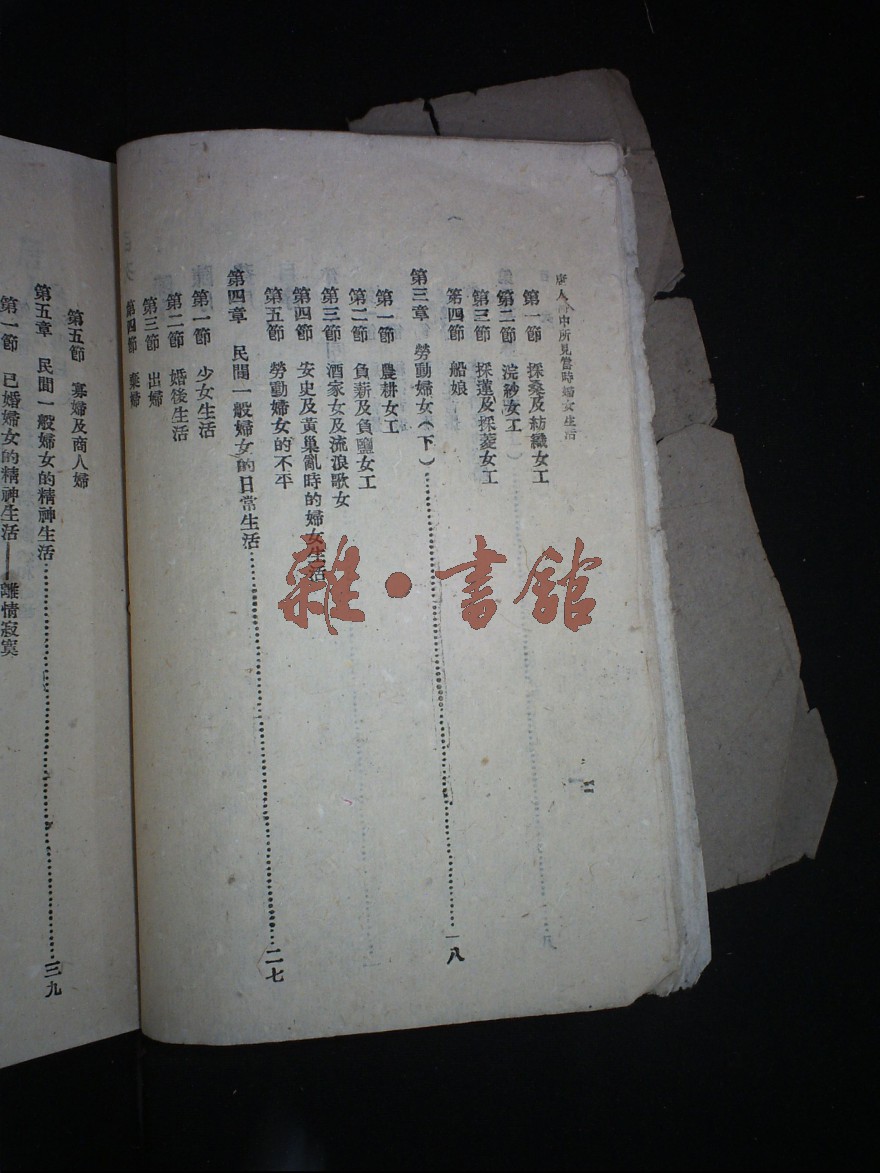 唐人詩中所見當時婦女生活
第一節 採桑及紡織女工
第二節 浣紗女工
第三節 採蓮及採菱女工
第四節 船娘
第三章 勞動婦女(下)……一八
第一節 農耕女工
第二節 負薪及負鹽女工
第三節 酒家女及流浪歌女
第四節 安史及黃巢亂時的婦女生活
第五節 勞動婦女的不平
第四章 民間一般婦女的日常生活……二七
第一節 少女生活
第二節 婚後生活
第三節 出婦
第四節 棄婦
第五節 寡婦及商人婦
第五章 民間一般婦女的精神生活……三九
第一節 已婚婦女的精神生活——離情寂寞
二
雜·書館